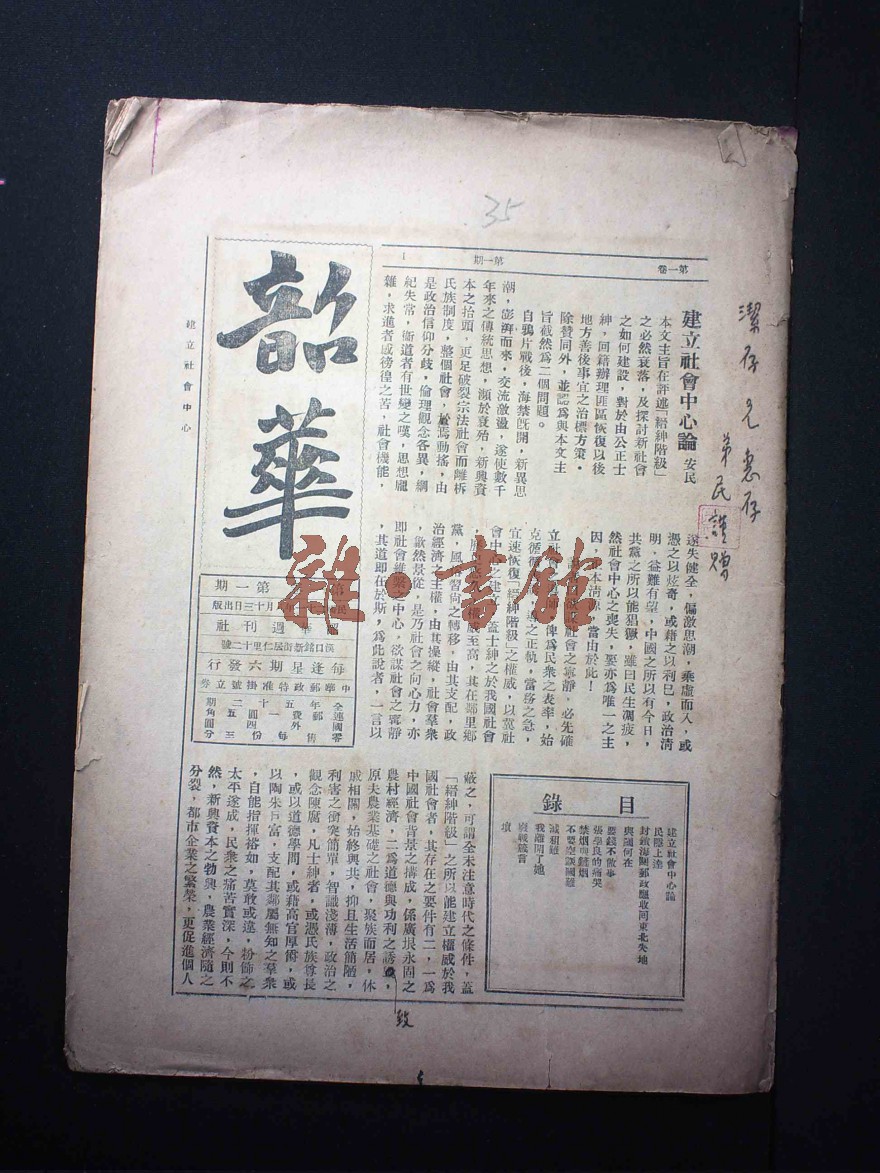 35
第一卷
第一期
1
潔存兄惠存
弟民謹贈
韶華
建立社會中心
建立社會中心論 安民
本文主旨在評述「縉紳階級」
之必然衰落，及探討新社會
之如何建設，對於由公正士
紳，回籍辦理匪區恢復以後
地方善後事宜之治標方策，
除贊同外，並認為與本文主
旨截然為二個問題。
自鴉片戰後，海禁旣開，新異思
潮，澎湃而來，交流激盪，遂使數千
年來之傳統思想，瀕於衰殆，新興資
本之抬頭，更足破裂宗法社會而離柝
氏族制度，整個社會，於焉動搖，由
是政治信仰分歧，倫理觀念各異，綱
紀失常，衞道者有世變之嘆，思想龐
雜，求進者感徬徨之苦，社會機能，
遂失健全，偏激思潮，乘虛而入，或
憑之以炫奇，或藉之以利已，政治淸
明，益難有望，中國之所以有今日，
共黨之所以能猖獗，雖曰民生凋疲，
然社會中心之喪失，要亦為唯一之主
因，本淸源，當由於此！
社會之寧靜，必先確
立社會，俾為民衆之表率，始
克循之正軌，當務之急，
宜速恢復「縉紳階級」之權威，以冀社
會中心之建，蓋士紳之於我國社會
，威至高，其在鄰里鄉
黨，風俗習尙之轉移，由其支配，政
治經濟之主權，由其操縱，社會羣衆
，歙然景從，是乃社會之向心力，亦
卽社會維繫之中心，欲謀社會之寗靜
，其道卽在於斯，爲此說者，一言以
蔽之，可謂全未注意時代之條件，蓋
「縉紳階級」之所以能建立權威於我
國社會者，其存在之要件有二，一爲
中國社會背景之構成，係廣垠永固之
農村經濟，二爲道德與功利之誘，
原夫農業基礎之社會，聚族而居，休
戚相關，始終與共，抑且生活簡陋，
利害之衝突簡單，智識淺薄，政治之
觀念陳腐，凡士紳者，或憑氏族尊長
，或以道德學問，或藉高官厚衔，或
以陶朱巨富，支配其鄰屬無知之羣衆
，自能指揮裕如，莫敢或違，粉飾之
太平遂成，民衆之痛苦實深，今則不
然，新興資本之勃興，農業經濟隨之
分裂，都市企業之繁榮，更促進個人
致
第一期
月十三日出版
華週刊社
漢口銘新街居仁里十二號
每逢星期六發行
中華郵政特准掛號立券
全年五十二期
連郵費一圓五角
國外四圓
零售每份三分
目錄
建立社會中心論
民隱上達
封鎖海關郵政應收回東北失地
與國何在
要錢不做事
張學良的痛哭
禁烟與賣烟
不要空談國難
減租運
我離開了她
廢職職言
壞
雜·書館